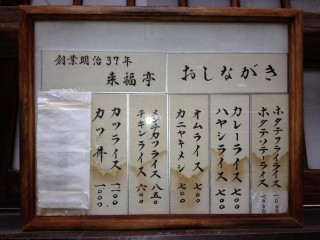 創業明治37年
来福亭
おしながき
ホタテフライライス 一、〇五〇
ホタテソテーライス 一、〇五〇
カレーライス 七〇〇
ハヤシライス 七〇〇
オムライス 七〇〇
カニヤキメシ 七〇〇
メンチカツライス 八五〇
チキンライス 六〇〇
カツライス
カツ丼